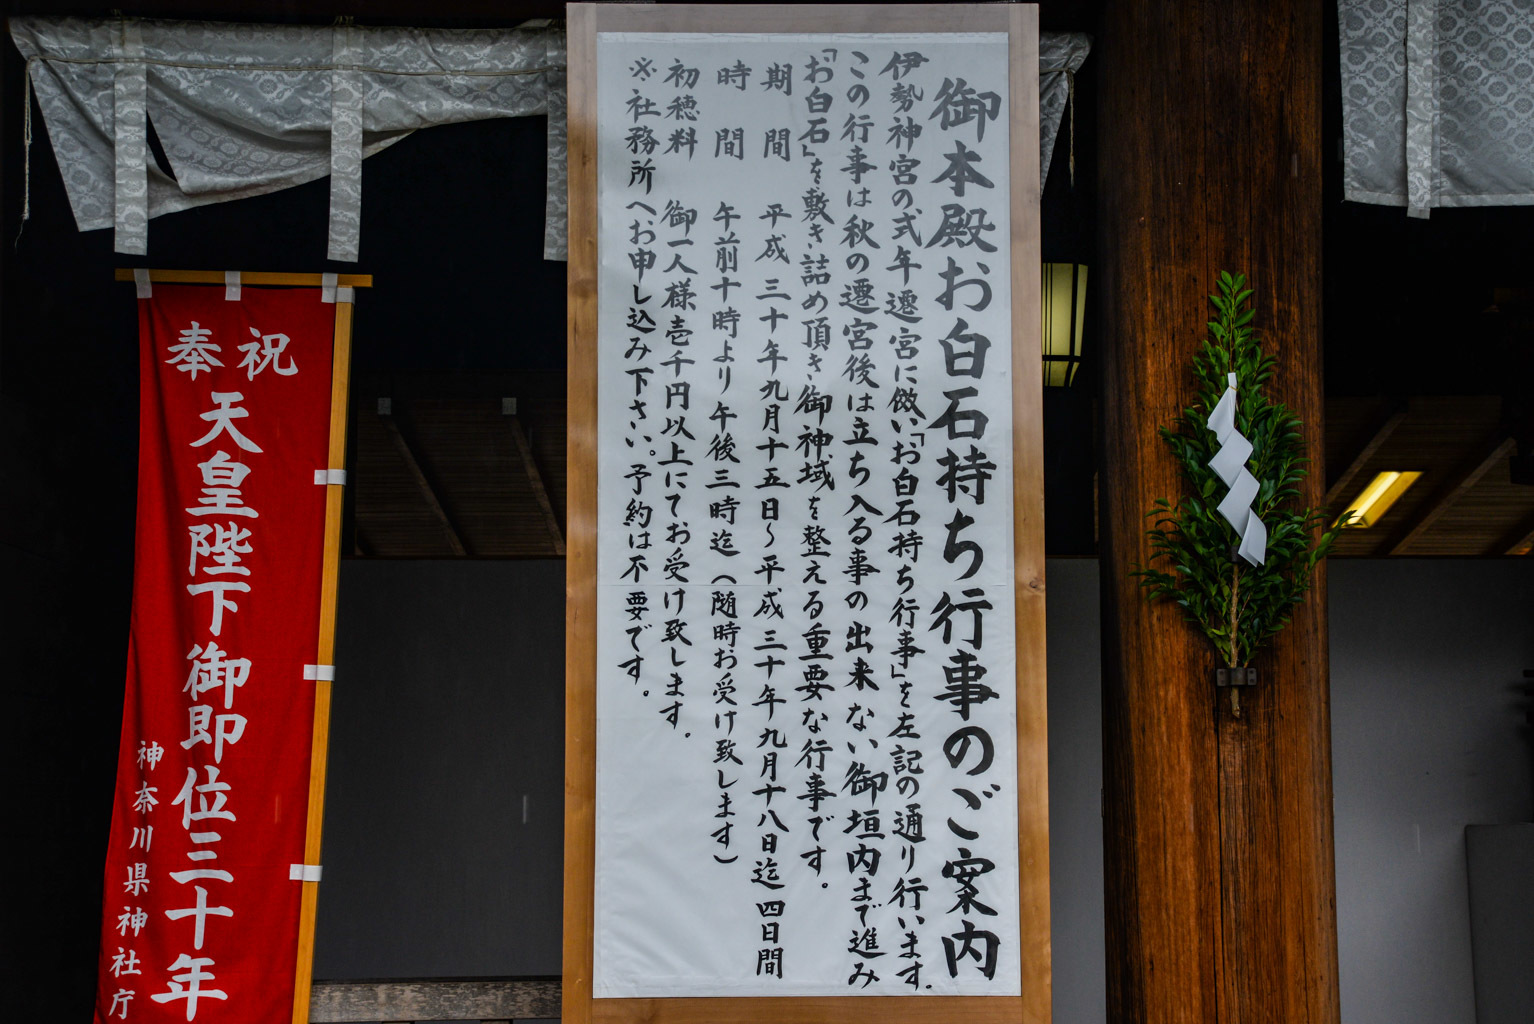 御本殿お白石持ち行事のご案内
伊勢神宮の式年遷宮に倣い「お白石持ち行事」を左記の通り行います。
この行事は秋の遷宮後は立ち入る事の出来ない御垣内まで進み
「お白石」を敷き詰め頂き御神域を整える重要な行事です。
期間 平成三十年九月十五日～平成三十年九月十八日迄 四日間
時間 午前十時より午後三時迄（随時お受け致します）
初穂料 御一人様壱千円以上にてお受け致します。
※社務所へお申し込み下さい。予約は不要です。
奉祝
天皇陛下御即位三十年
神奈川県神社庁